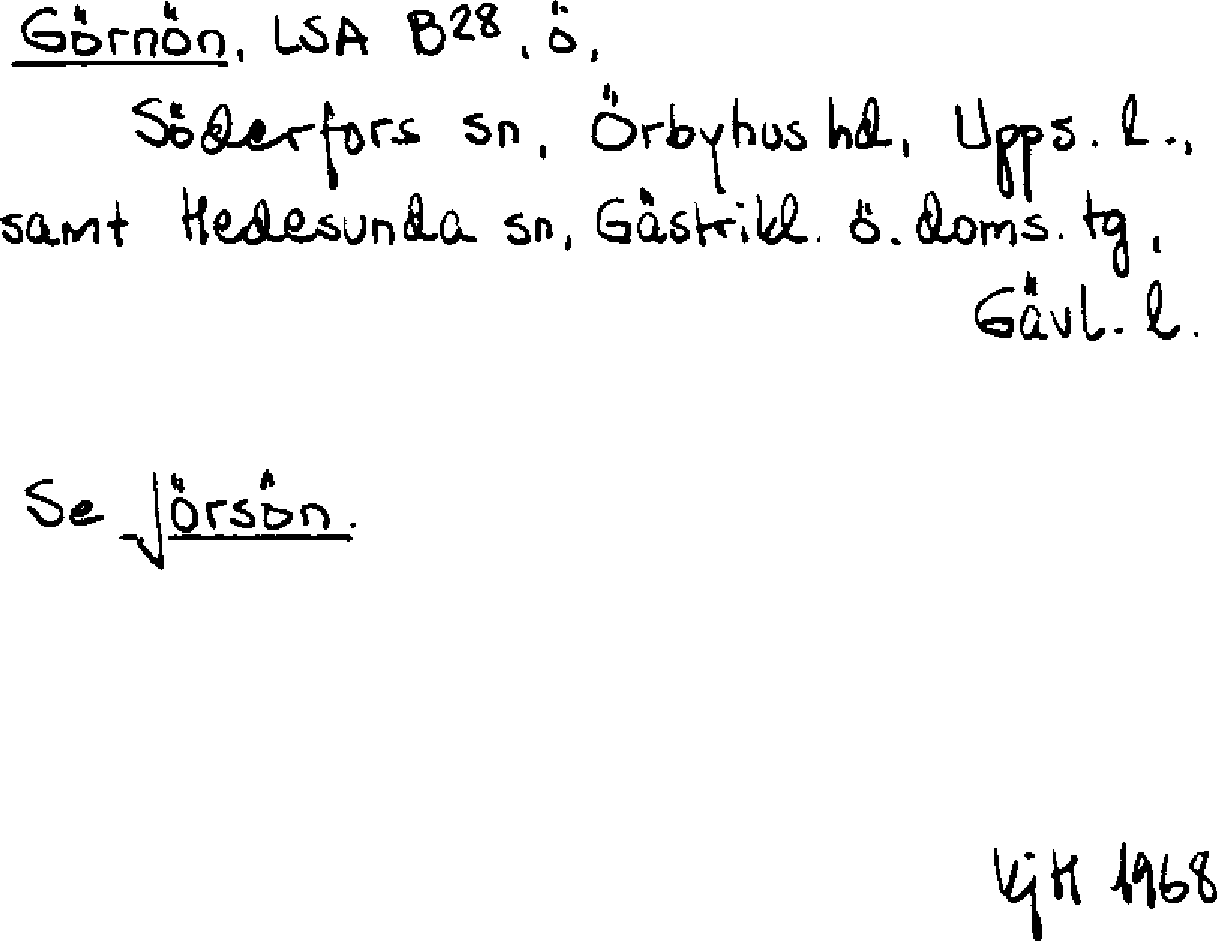 Görnön, LSA B28, ö,
Söderfors sn, Örbyhus hd, Upps. l.,
samt Hedesunda sn, Gästrikl. ö. doms. tg,
Gävl. l.
Se √örsön.
KjH 1968